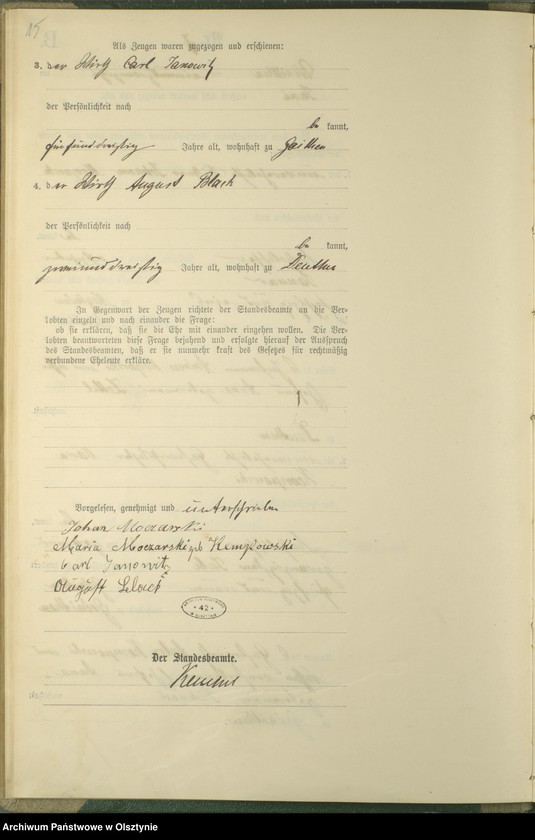 15
Als Zeugen waren zugezogen und erschienen:
3. der Wirth Carl Janowitz
der Persönlichkeit nach
be kannt,
fünfunddreißig Jahre alt, wohnhaft zu
4. der Wirth August Black
der Persönlichkeit nach
be kannt,
zweiunddreißig Jahre alt, wohnhaft zu
In Gegenwart der Zeugen richtete der Standesbeamte an die Ver-
lobten einzeln und nach einander die Frage:
ob sie erklären, daß sie die Ehe mit einander eingehen wollen. Die Ver-
lobten beantworteten diese Frage bejahend und erfolgte hierauf der Ausspruch
des Standesbeamten, daß er sie nunmehr kraft des Gesetzes für rechtmäßig
verbundene Eheleute erkläre.
Vorgelesen, genehmigt und unterschrieben
Johan Moczarski
Maria Moczarski geb Kempowski
Carl Janowitz
August
42
Der Standesbeamte.
Archiwum Państwowe w Olsztynie